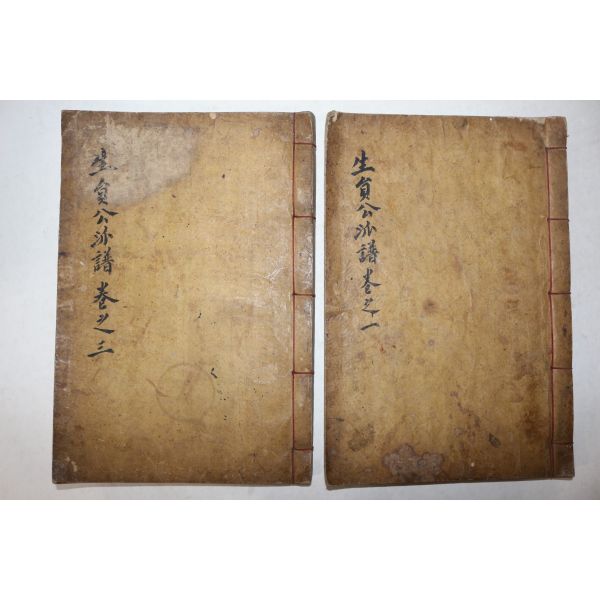 生員公派譜 卷之一
生員公派譜 卷之三